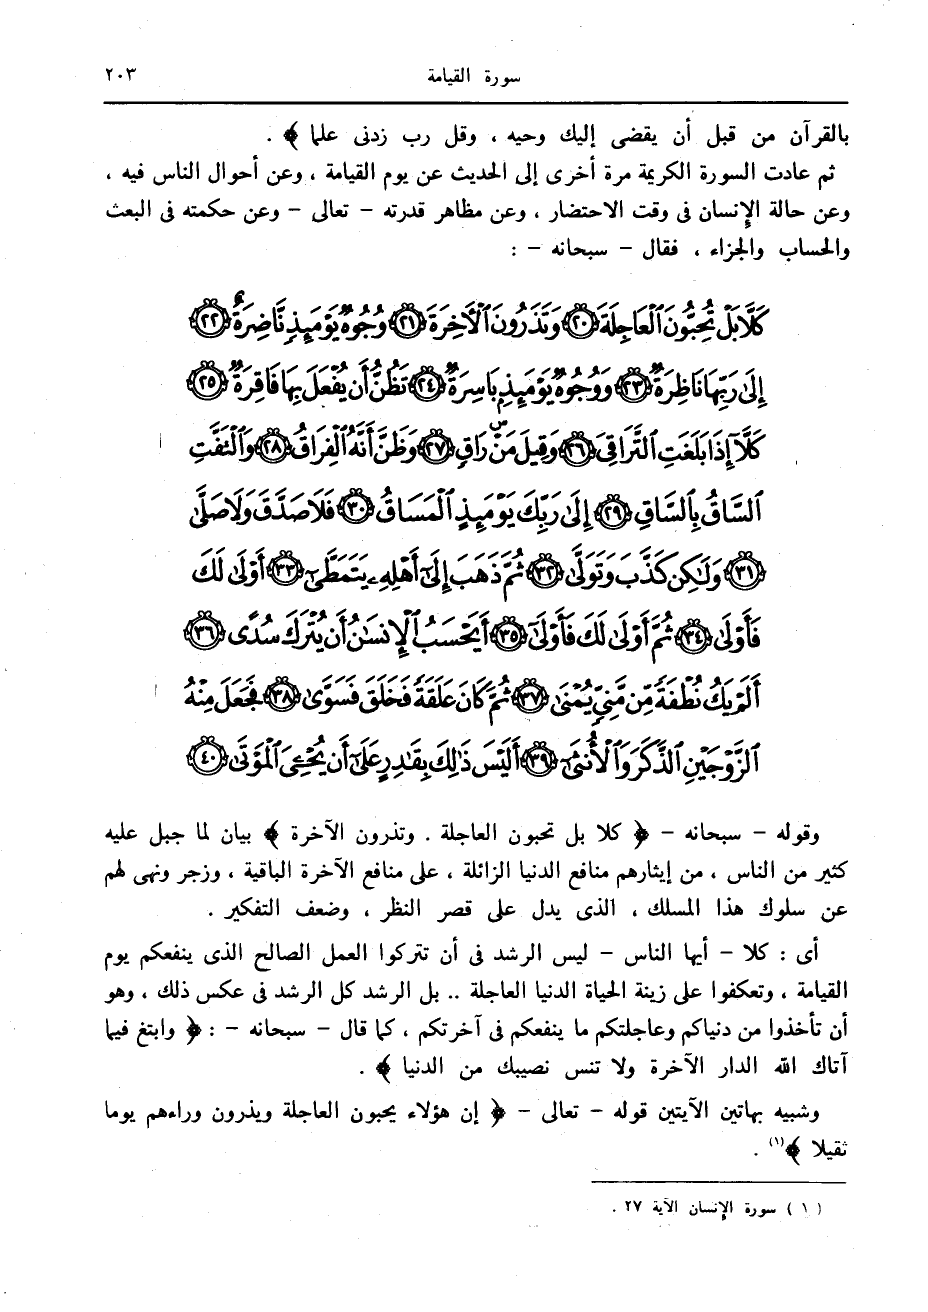 سورة القيامة ٢٠٣
بالقرآن من قبل أن يقضى إليك وحيه ، وقل رب زدنى علما ﴾ .
ثم عادت السورة الكريمة مرة أخرى إلى الحديث عن يوم القيامة ، وعن أحوال الناس فيه ،
وعن حالة الإنسان فى وقت الاحتضار ، وعن مظاهر قدرته - تعالى - وعن حكمته فى البعث
والحساب والجزاء ، فقال - سبحانه - :
كَلَّا بَلْ تُحِبُّونَ ٱلْعَاجِلَةَ ﴿٢٠﴾ وَتَذَرُونَ ٱلْأَخِرَةَ ﴿٢١﴾ وُجُوهٌ يَوْمَئِذٍ نَّاضِرَةٌ ﴿٢٢﴾
إِلَىٰ رَبِّهَا نَاظِرَةٌ ﴿٢٣﴾ وَوُجُوهٌ يَوْمَئِذٍ بَاسِرَةٌ ﴿٢٤﴾ تَظُنُّ أَن يُفْعَلَ بِهَا فَاقِرَةٌ ﴿٢٥﴾
كَلَّآ إِذَا بَلَغَتِ ٱلتَّرَاقِىَ ﴿٢٦﴾ وَقِيلَ مَنْ ۜ رَاقٍ ﴿٢٧﴾ وَظَنَّ أَنَّهُ ٱلْفِرَاقُ ﴿٢٨﴾ وَٱلْتَفَّتِ
ٱلسَّاقُ بِٱلسَّاقِ ﴿٢٩﴾ إِلَىٰ رَبِّكَ يَوْمَئِذٍ ٱلْمَسَاقُ ﴿٣٠﴾ فَلَا صَدَّقَ وَلَا صَلَّىٰ
﴿٣١﴾ وَلَٰكِن كَذَّبَ وَتَوَلَّىٰ ﴿٣٢﴾ ثُمَّ ذَهَبَ إِلَىٰٓ أَهْلِهِۦ يَتَمَطَّىٰٓ ﴿٣٣﴾ أَوْلَىٰ لَكَ
فَأَوْلَىٰ ﴿٣٤﴾ ثُمَّ أَوْلَىٰ لَكَ فَأَوْلَىٰٓ ﴿٣٥﴾ أَيَحْسَبُ ٱلْإِنسَٰنُ أَن يُتْرَكَ سُدًى ﴿٣٦﴾
أَلَمْ يَكُ نُطْفَةً مِّن مَّنِىٍّ يُمْنَىٰ ﴿٣٧﴾ ثُمَّ كَانَ عَلَقَةً فَخَلَقَ فَسَوَّىٰ ﴿٣٨﴾ فَجَعَلَ مِنْهُ
ٱلزَّوْجَيْنِ ٱلذَّكَرَ وَٱلْأُنثَىٰٓ ﴿٣٩﴾ أَلَيْسَ ذَٰلِكَ بِقَٰدِرٍ عَلَىٰٓ أَن يُحْۦِىَ ٱلْمَوْتَىٰ ﴿٤٠﴾
وقوله - سبحانه - ﴿ كلا بل تحبون العاجلة . وتذرون الآخرة ﴾ بيان لما جبل عليه
كثير من الناس ، من إيثارهم منافع الدنيا الزائلة ، على منافع الآخرة الباقية ، وزجر ونهى لهم
عن سلوك هذا المسلك ، الذى يدل على قصر النظر ، وضعف التفكير .
أى : كلا - أيها الناس - ليس الرشد فى أن تتركوا العمل الصالح الذى ينفعكم يوم
القيامة ، وتعكفوا على زينة الحياة الدنيا العاجلة .. بل الرشد كل الرشد فى عكس ذلك ، وهو
أن تأخذوا من دنياكم وعاجلتكم ما ينفعكم فى آخرتكم ، كما قال - سبحانه - : ﴿ وابتغ فيما
آتاك الله الدار الآخرة ولا تنس نصيبك من الدنيا ﴾ .
وشبيه بهاتين الآيتين قوله - تعالى - ﴿ إن هؤلاء يحبون العاجلة ويذرون وراءهم يوما
ثقيلا ﴾(١) .
( ١ ) سورة الإنسان الآية ٢٧ .